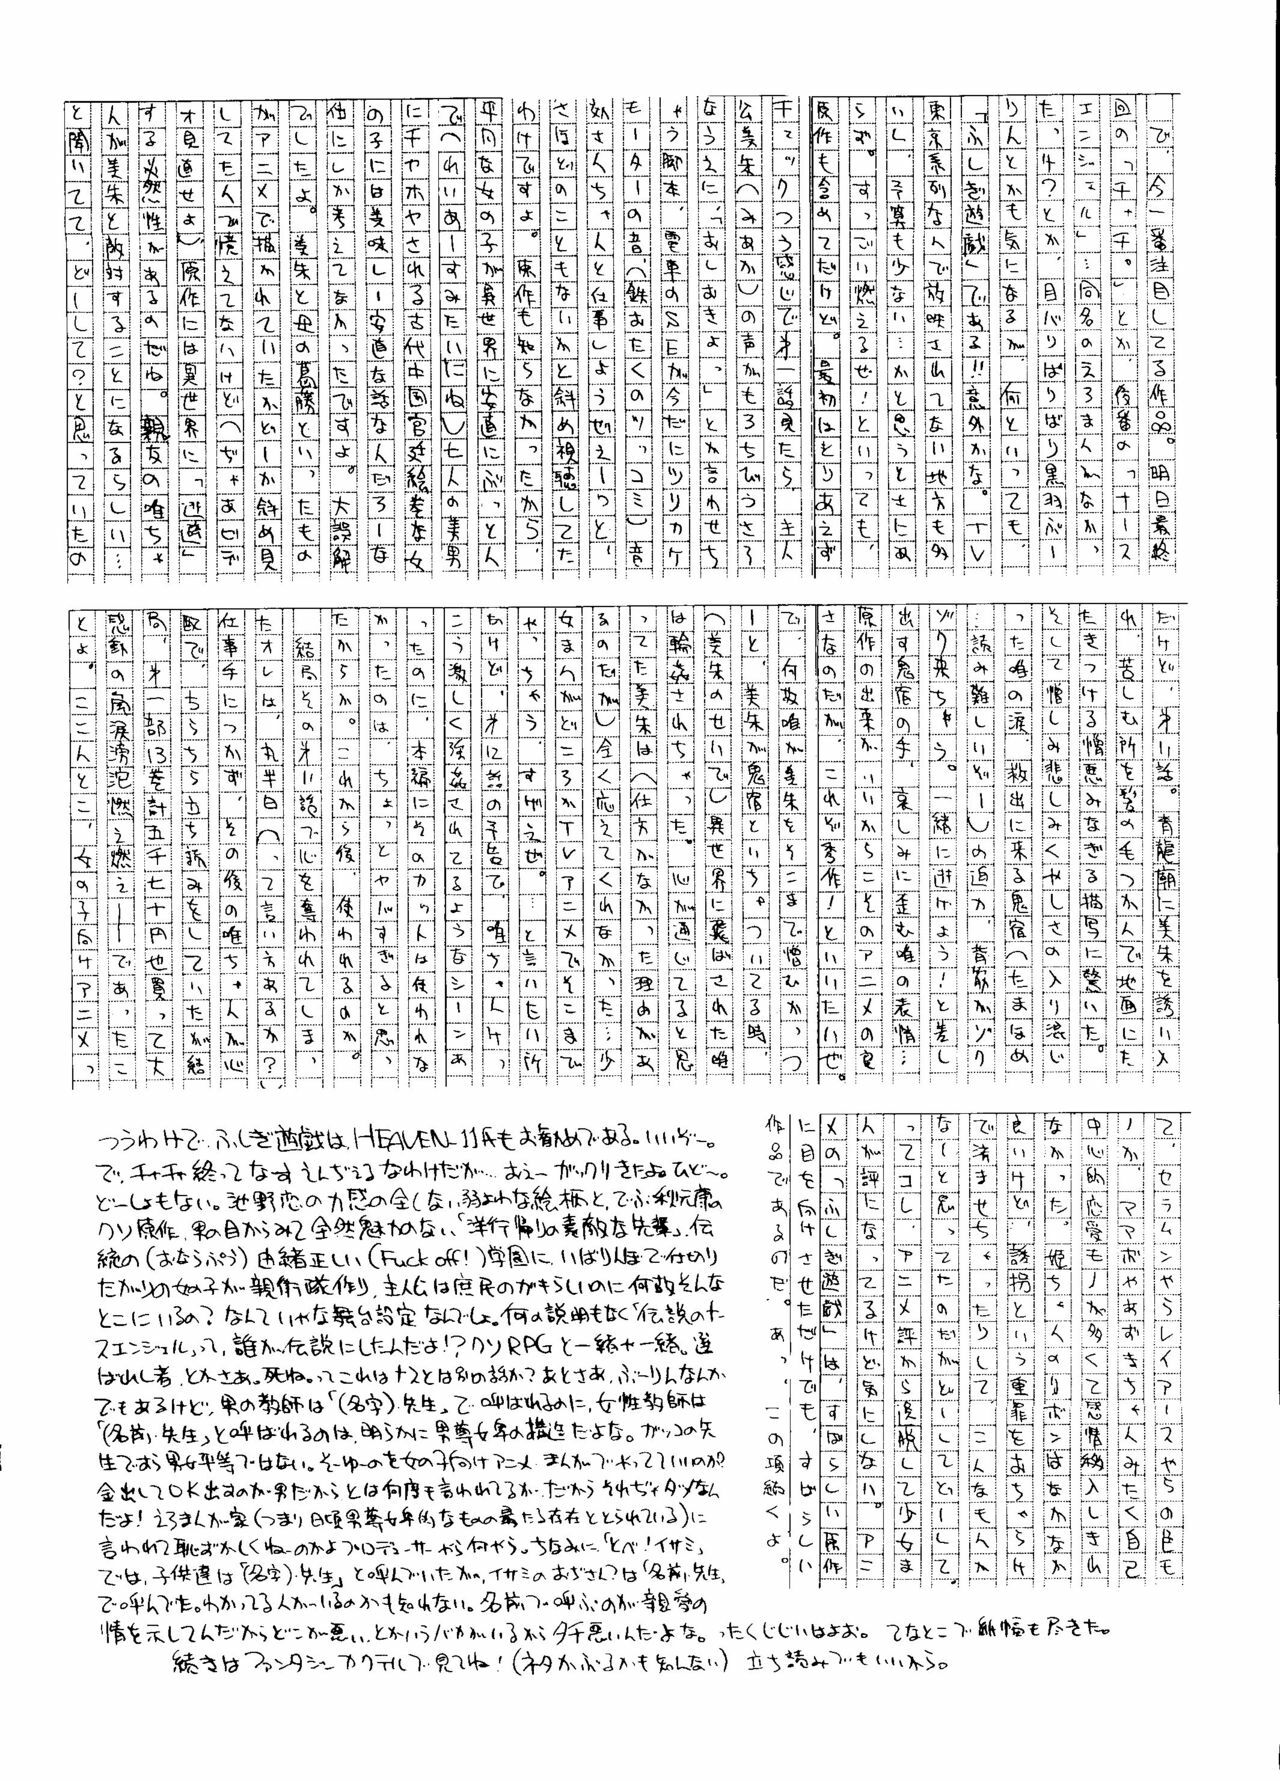 で、今一番注目してる作品。明日最終
回の「チャチャ」とか、後番の「ナース
エンジェル」…同名のえろまんがなかっ
た、4つとか、目バリばりばり黒羽ぶー
りんとかも気になるが、何といっても、
「ふしぎ遊戯」である!!意外かな。TV
東京系列なんで放映されてない地方も多
いし、予算も少ない…かと思うとさにあ
らず。すっごい燃えるぜ!といっても、
原作も含めてだけど。最初はとりあえず
チェックつう感じで第一話見たら、主人
公美朱(みあか)の声がもろちびうさろ
なうえに、「おしおきよっ」とか言わせち
ゃう脚本、電車のSEが今だにツリカケ
モーターの音、(鉄おたくのツッコミ)音
効さんちゃんと仕事しようぜえーっと、
さほどのこともないかと斜め視聴してた
わけですよ。原作も知らなかったから、
平凡な女の子が異世界に安直にぶっと人
で(れいあーすみたいだね)七人の美男
にチヤホヤされる古代中国宮廷絵巻な女
の子には美味しー安直な話なんだろーな
位にしか考えてなかったですよ。大誤解
でしたよ。美朱と母の葛藤といったもの
がアニメで描かれていたかどーか斜め見
してたんで憶えてないけど(ぢゃあビデ
オ見直せよ)原作には異世界に「逃避」
する必然性があるのだね。親友の唯ちゃ
んが美朱と敵対することになるらしい…
と聞いてて、どーして?と思っていたの
だけど、第11話。青龍朝に美朱を誘い入
れ、苦しむ所を髪の毛つかんで地面にた
たきつける憎悪みなぎる描写に驚いた。
そして憎しみ悲しみくやしさの入り混じ
った唯の涙、救出に来る鬼宿(たまほめ
…読み難しいどー)の迫力、背筋がゾリ
ゾク来ちゃう。一緒に逃げよう!と差し
出す鬼宿の手、哀しみに歪む唯の表情…
原作の出来か、いいからこそのアニメの良
さなのだが、これぞ秀作!といいたいぜ。
で、何故唯が美朱をそこまで憎むか、っ
ーと、美朱が鬼宿といちゃついてる時、
(美朱のせいで)異世界に飛ばされた唯
は輪姦されちゃった。心が通じてると思
ってた美朱は(仕方がなかった理由があ
るのだが)全く応えてくれなかった…少
女まんがどころかTVアニメでそこまで
やっちゃう、すげえぜ。…と言いたい所
だけど、第12話の予告で、唯ちゃんけっ
こう激しく強姦されてるようなシーンあ
ったのに、本編にそのカットは使われな
かったのは、ちょっとヤバすぎると思っ
たからか。これから後、使われるのか。
結局その第11話で心を奪われてしまっ
たオレは、丸半日(って言い方あるか?)
仕事手につかず、その後の唯ちゃんが心
配で、ちらちら立ち読みをしていたが結
局、第一部13巻計五千七十円也買って大
感動の嵐涙滂沱燃え燃えーーであったこ
とよ。ここんとこ、女の子向けアニメっ
て、セラムンやらレイアースやらの自己
ノか、アアムボやあずきちゃんみたく自己
中心的恋愛モノが多くて感情移入しきれ
なかった。姫ちゃんのリボンはなかなか
良いけど、誘拐という重罪をおちゃらけ
で済ませちゃったりしてこんなもんか
なーと思ってたのだがどーしてどーして。
っコしアニメ評から逸脱して少女ま
んが評になってるけど気にしない。アニ
メの「ふしぎ遊戯」は、すばらしい原作
に目を向けさせただけでも、すばらしい
作品であるのだ。あっ、この項続くよ。
つうわけで、ふしぎ遊戯は、HEAVEN-11氏もお勧めである。いいぞー。
で、チャチャ終ってなーすえんぢぇるなわけだが…おえーガックリきたよね ひど〜。
どーしよもない。池野恋の力感の全くない弱よわな絵柄と、でぶ秋元康の
クソ原作、男の目からみて全然魅力のない「洋行帰りの素敵な先輩」、伝
統の(おならぷう)由緒正しい(Fuck off!)学園に、いばりんぼで仕切り
たがりの女の子が親衛隊作り、主人公は庶民のがきらしいのに何故そんな
とこにいるの?なんていやな舞台設定なんでしょ。何の説明もなく「伝説のナー
スエンジェル」って、誰が伝説にしたんだよ!?クソRPGと一緒ナ一緒。選
ばれし者、とかさあ。死ね。ってこれはナースとは別の話か?あとさあ、ぶーりんなんか
でもあるけど、男の教師は「(名字)先生」で呼ばれるのに、女性教師は
「(名前)先生」と呼ばれるのは、明らかに男尊女卑の構造だよな。ガッコの先
生ですら男女平等ではない。そーゆーのを女の子向けアニメ まんがでやってていいのか?
金出してOK出すのが男だからとは何度も言われてるが、だからそれぢゃダメなん
だよ!えろまんが家(つまり日頃男尊女卑的なものの最たる存在ととられている)に
言われて恥ずかしくねーのかよプロデューサーやら何やら。ちなみに、「とべ!イサミ」
では、子供達は「(名字)先生」と呼んでいたが、イサミのおぢさんは「名前先生」
で呼んでた。わかってる人がいるのかも知れない。名前で呼ぶのが親愛の
情を示してんだからどこが悪い、とかいうバカがいるからタチ悪いんだよな。ったくじじいはよお。てなとこで紙幅も尽きた。
続きはファンタジーカクテルで見てね!(ネタかぶるかも知んない)立ち読みでもいいから。